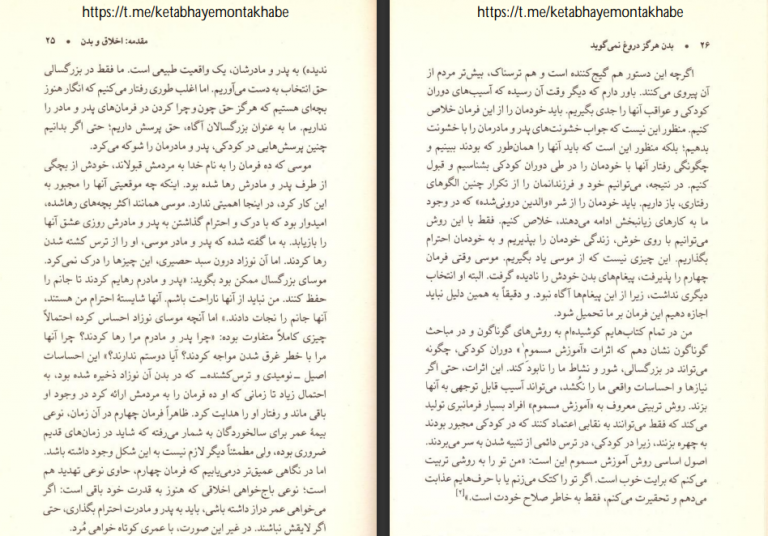 https://t.me/ketabhayemontakhabe
۲۶ • بدن هرگز دروغ نمی‌گوید
اگرچه این دستور هم گیج‌کننده است و هم ترسناک، بیش‌تر مردم از
آن پیروی می‌کنند. باور دارم که دیگر وقت آن رسیده که آسیب‌های دوران
کودکی و عواقب آنها را جدی بگیریم. باید خودمان را از این فرمان خلاص
کنیم. منظور این نیست که جواب خشونت‌های پدر و مادرمان را با خشونت
بدهیم؛ بلکه منظور این است که باید آنها را همان‌طور که بودند ببینیم و
چگونگی رفتار آنها با خودمان را در طی دوران کودکی بشناسیم و قبول
کنیم. در نتیجه، می‌توانیم خود و فرزندانمان را از تکرار چنین الگوهای
رفتاری، باز داریم. باید خودمان را از شر «والدین درونی‌شده» که در وجود
ما به کارهای زیانبخش ادامه می‌دهند، خلاص کنیم. فقط با این روش
می‌توانیم با روی خوش، زندگی خودمان را بپذیریم و به خودمان احترام
بگذاریم. این چیزی نیست که از موسی یاد بگیریم. موسی وقتی فرمان
چهارم را پذیرفت، پیغام‌های بدن خودش را نادیده گرفت. البته او انتخاب
دیگری نداشت، زیرا از این پیغام‌ها آگاه نبود. و دقیقاً به همین دلیل نباید
اجازه دهیم این فرمان بر ما تحمیل شود.
من در تمام کتاب‌هایم کوشیده‌ام به روش‌های گوناگون و در مباحث
گوناگون نشان دهم که اثرات «آموزش مسموم¹» دوران کودکی، چگونه
می‌تواند در بزرگسالی، شور و نشاط ما را نابود کند. این اثرات، حتی اگر
نیازها و احساسات واقعی ما را نکُشد، می‌تواند آسیب قابل توجهی به آنها
بزند. روش تربیتی معروف به «آموزش مسموم» افراد بسیار فرمانبری تولید
می‌کند که فقط می‌توانند به نقابی اعتماد کنند که در کودکی مجبور بودند
به چهره بزنند، زیرا در کودکی، در ترس دائمی از تنبیه شدن به سر می‌بردند.
اصول اساسی روش آموزش مسموم این است: «من تو را به روشی تربیت
می‌کنم که برایت خوب است. اگر تو را کتک می‌زنم یا با حرف‌هایم عذابت
می‌دهم و تحقیرت می‌کنم، فقط به خاطر صلاح خودت است.»[۲]
https://t.me/ketabhayemontakhabe
مقدمه: اخلاق و بدن • ۲۵
ندیده) به پدر و مادرشان، یک واقعیت طبیعی است. ما فقط در بزرگسالی
حق انتخاب به دست می‌آوریم. اما اغلب طوری رفتار می‌کنیم که انگار هنوز
بچه‌ای هستیم که هرگز حق چون‌وچرا کردن در فرمان‌های پدر و مادر را
نداریم. ما به عنوان بزرگسالان آگاه، حق پرسش داریم؛ حتی اگر بدانیم
چنین پرسش‌هایی در کودکی، پدر و مادرمان را شوکه می‌کرد.
موسی که ده فرمان را به نام خدا به مردمش قبولاند، خودش از بچگی
از طرف پدر و مادرش رها شده بود. اینکه چه موقعیتی آنها را مجبور به
این کار کرد، در اینجا اهمیتی ندارد. موسی همانند اکثر بچه‌های رهاشده،
امیدوار بود که با درک و احترام گذاشتن به پدر و مادرش روزی عشق آنها
را بازیابد. به ما گفته شده که پدر و مادر موسی، او را از ترس کشته شدن
رها کردند. اما آن نوزاد درون سبد حصیری، این چیزها را درک نمی‌کرد.
موسای بزرگسال ممکن بود بگوید: «پدر و مادرم رهایم کردند تا جانم را
حفظ کنند. من نباید از آنها ناراحت باشم. آنها شایستهٔ احترام من هستند،
آنها جانم را نجات دادند.» اما آنچه موسای نوزاد احساس کرده احتمالاً
چیزی کاملاً متفاوت بوده: «چرا پدر و مادرم مرا رها کردند؟ چرا آنها
مرا با خطر غرق شدن مواجه کردند؟ آیا دوستم ندارند؟» این احساسات
اصیل ـ‌نومیدی و ترس‌کشنده‌ـ که در بدن آن نوزاد ذخیره شده بود، به
احتمال زیاد تا زمانی که او ده فرمان را به مردمش ارائه کرد در وجود او
باقی ماند و رفتار او را هدایت کرد. ظاهراً فرمان چهارم در آن زمان، نوعی
بیمهٔ عمر برای سالخوردگان به شمار می‌رفته که شاید در زمان‌های قدیم
ضروری بوده، ولی مطمئناً دیگر لازم نیست به این شکل وجود داشته باشد.
اما در نگاهی عمیق‌تر درمی‌یابیم که فرمان چهارم، حاوی نوعی تهدید هم
است؛ نوعی باج‌خواهی اخلاقی که هنوز به قدرت خود باقی است: اگر
می‌خواهی عمر دراز داشته باشی، باید به پدر و مادرت احترام بگذاری، حتی
اگر لایقش نباشند. در غیر این صورت، با عمری کوتاه خواهی مُرد.